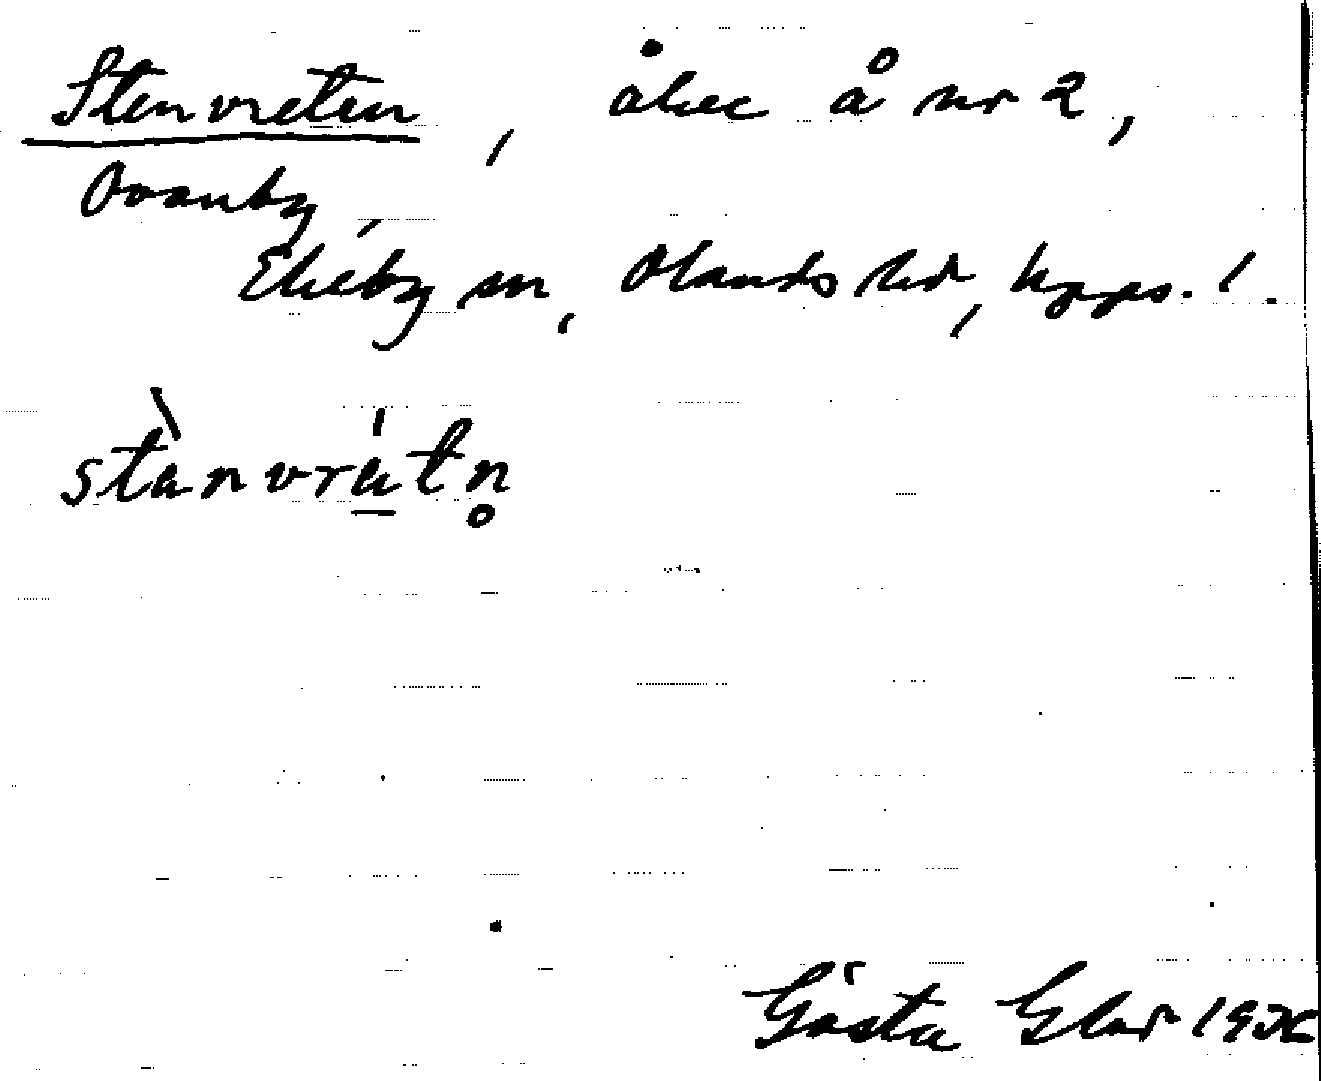 Stenvreten, åker å nr 2,
Ovanby,
Ekeby sn, Olands hd, Upps. l.
stànvrätn̥
Gösta Elar